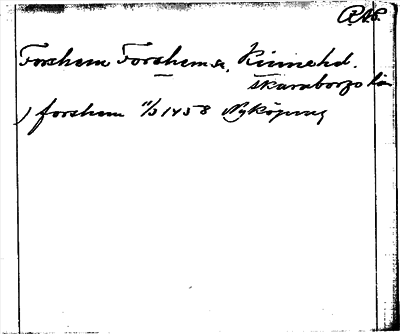 Forshem Forshem sn, Kinne hd.
Skaraborgs län
) forshem 11/3 1458 Nyköping